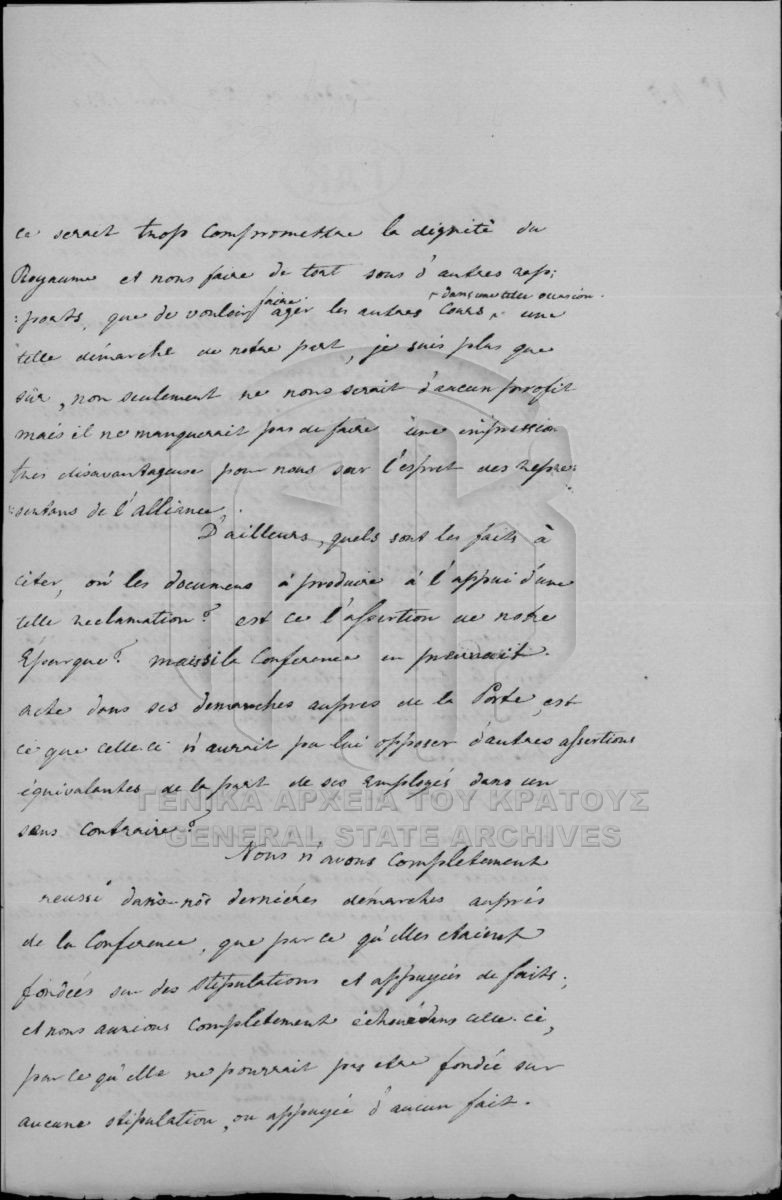 ce serait trop compromettre la dignité du
Royaume et nous faire de tort sous d'autres rap:
:ports, que de vouloir faire agir les autres Cours, dans une telle occasion. une
telle démarche de notre part, je suis plus que
sûr, non seulement ne nous serait d'aucun profit
mais il ne manquerait pas de faire une impression
tres disavantageuse pour nous sur l'esprit des repre:
:sentans de l'alliance.
D'ailleurs, quels sont les faits à
citer, où les documens à produire à l'appui d'une
telle reclamation? est ce l'assertion de notre
Éparque? mais si la Conference en prenait
acte dans ses demarches aupres de la Porte, est
ce que celle-ci n'aurait pu lui opposer d'autres assertions
équivalantes de la part de ses Employés dans un
sens contraire?
Nous n'avons completement
reussi dans nos derniéres démarches auprés
de la Conference, que parce qu'elles etaient
fondées sur des stipulations et appuyées de faits;
et nous aurions completement échoué dans celle-ci,
parce qu'elle ne pourrait pas etre fondée sur
aucune stipulation, ou appuyée d'aucun fait.
ΓΕΝΙΚΑ ΑΡΧΕΙΑ ΤΟΥ ΚΡΑΤΟΥΣ
GENERAL STATE ARCHIVES